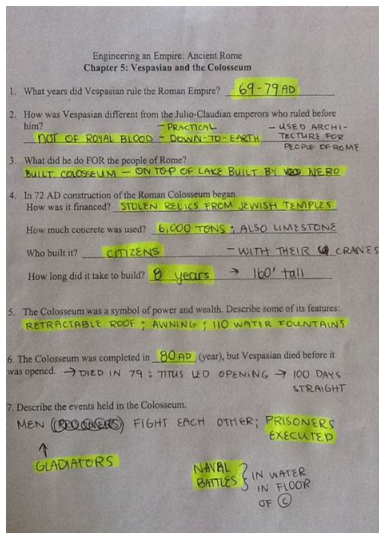 Engineering an Empire: Ancient Rome
Chapter 5: Vespasian and the Colosseum
1. What years did Vespasian rule the Roman Empire? 69-79 AD
2. How was Vespasian different from the Julio-Claudian emperors who ruled before
him? - PRACTICAL - USED ARCHI-
NOT OF ROYAL BLOOD - DOWN-TO-EARTH TECTURE FOR
PEOPLE OF ROME
3. What did he do FOR the people of Rome?
BUILT COLOSSEUM - ON TOP OF LAKE BUILT BY NERO
4. In 72 AD construction of the Roman Colosseum began.
How was it financed? STOLEN RELICS FROM JEWISH TEMPLES
How much concrete was used? 6,000 TONS; ALSO LIMESTONE
Who built it? CITIZENS - WITH THEIR CRANES
How long did it take to build? 8 years → 160' tall
5. The Colosseum was a symbol of power and wealth. Describe some of its features:
RETRACTABLE ROOF; AWNING; 110 WATER FOUNTAINS
6. The Colosseum was completed in 80 AD (year), but Vespasian died before it
was opened. → DIED IN 79; TITUS LED OPENING → 100 DAYS
STRAIGHT
7. Describe the events held in the Colosseum.
MEN FIGHT EACH OTHER; PRISONERS
EXECUTED
↑
GLADIATORS
NAVAL
BATTLES } IN WATER
IN FLOOR
OF ©